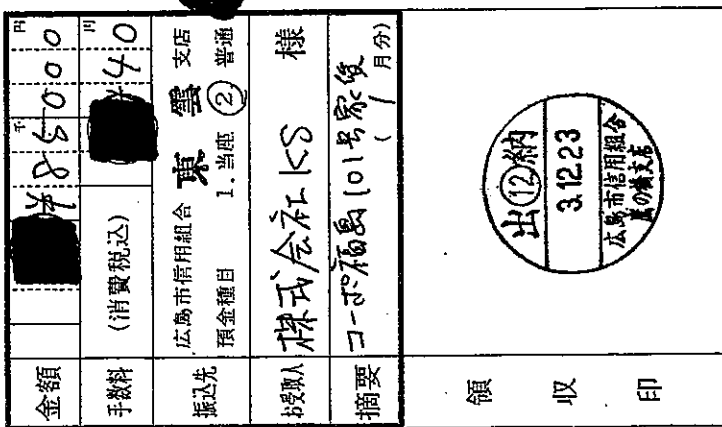 金額 ¥85000 千 円
手数料 (消費税込) 40 円
振込先 広島市信用組合 東雲 支店
預金種目 1. 当座 ② 普通
お受取人 株式会社KS 様
摘要 コーポ福島101号家賃
(1月分)
領収印
出⑫納
3.12.23
広島市信用組合